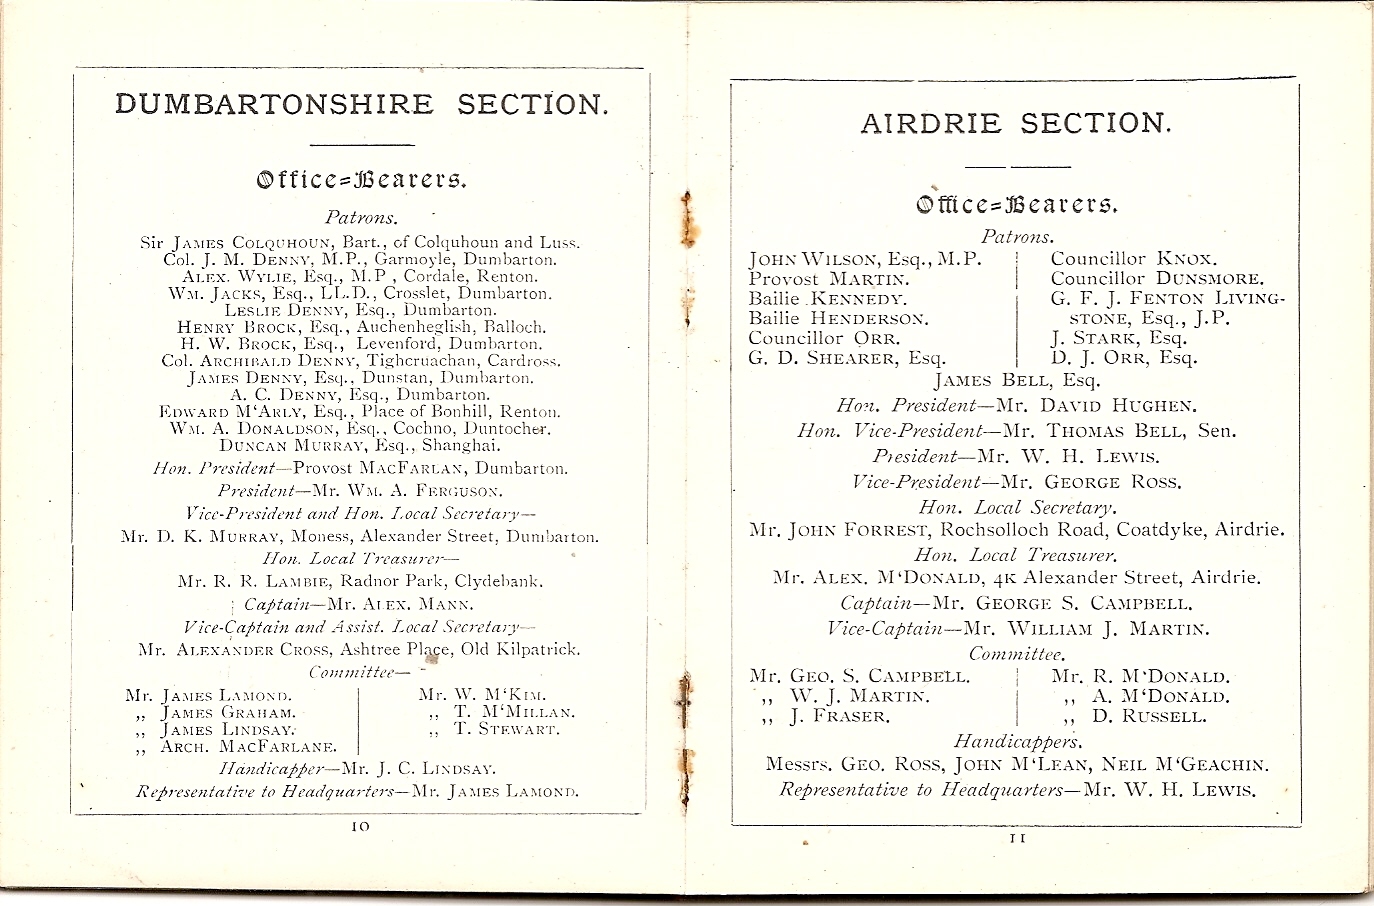 DUMBARTONSHIRE SECTION.
Office=Bearers.
Patrons.
Sir JAMES COLQUHOUN, Bart., of Colquhoun and Luss.
Col. J. M. DENNY, M.P., Garmoyle, Dumbarton.
ALEX. WYLIE, Esq., M.P , Cordale, Renton.
WM. JACKS, Esq., LL.D., Crosslet, Dumbarton.
LESLIE DENNY, Esq., Dumbarton.
HENRY BROCK, Esq., Auchenheglish, Balloch.
H. W. BROCK, Esq., Levenford, Dumbarton.
Col. ARCHIBALD DENNY, Tighcruachan, Cardross.
JAMES DENNY, Esq., Dunstan, Dumbarton.
A. C. DENNY, Esq., Dumbarton.
EDWARD M‘ARLY, Esq., Place of Bonhill, Renton.
WM. A. DONALDSON, Esq., Cochno, Duntocher.
DUNCAN MURRAY, Esq., Shanghai.
Hon. President—Provost MACFARLAN, Dumbarton.
President—Mr. WM. A. FERGUSON.
Vice-President and Hon. Local Secretary—
Mr. D. K. MURRAY, Moness, Alexander Street, Dumbarton.
Hon. Local Treasurer—
Mr. R. R. LAMBIE, Radnor Park, Clydebank.
Captain—Mr. ALEX. MANN.
Vice-Captain and Assist. Local Secretary—
Mr. ALEXANDER CROSS, Ashtree Place, Old Kilpatrick.
Committee—
Mr. JAMES LAMOND.
,, JAMES GRAHAM.
,, JAMES LINDSAY.
,, ARCH. MACFARLANE.
Mr. W. M‘KIM.
,, T. M‘MILLAN.
,, T. STEWART.
Handicapper—Mr. J. C. LINDSAY.
Representative to Headquarters—Mr. JAMES LAMOND.
10
AIRDRIE SECTION.
Office=Bearers.
Patrons.
JOHN WILSON, Esq., M.P.
Provost MARTIN.
Bailie KENNEDY.
Bailie HENDERSON.
Councillor ORR.
G. D. SHEARER, Esq.
Councillor KNOX.
Councillor DUNSMORE.
G. F. J. FENTON LIVING-
STONE, Esq., J.P.
J. STARK, Esq.
D. J. ORR, Esq.
JAMES BELL, Esq.
Hon. President—Mr. DAVID HUGHEN.
Hon. Vice-President—Mr. THOMAS BELL, Sen.
President—Mr. W. H. LEWIS.
Vice-President—Mr. GEORGE ROSS.
Hon. Local Secretary.
Mr. JOHN FORREST, Rochsolloch Road, Coatdyke, Airdrie.
Hon. Local Treasurer.
Mr. ALEX. M‘DONALD, 4K Alexander Street, Airdrie.
Captain—Mr. GEORGE S. CAMPBELL.
Vice-Captain—Mr. WILLIAM J. MARTIN.
Committee.
Mr. GEO. S. CAMPBELL.
,, W. J. MARTIN.
,, J. FRASER.
Mr. R. M‘DONALD.
,, A. M‘DONALD.
,, D. RUSSELL.
Handicappers.
Messrs. GEO. ROSS, JOHN M‘LEAN, NEIL M‘GEACHIN.
Representative to Headquarters—Mr. W. H. LEWIS.
11